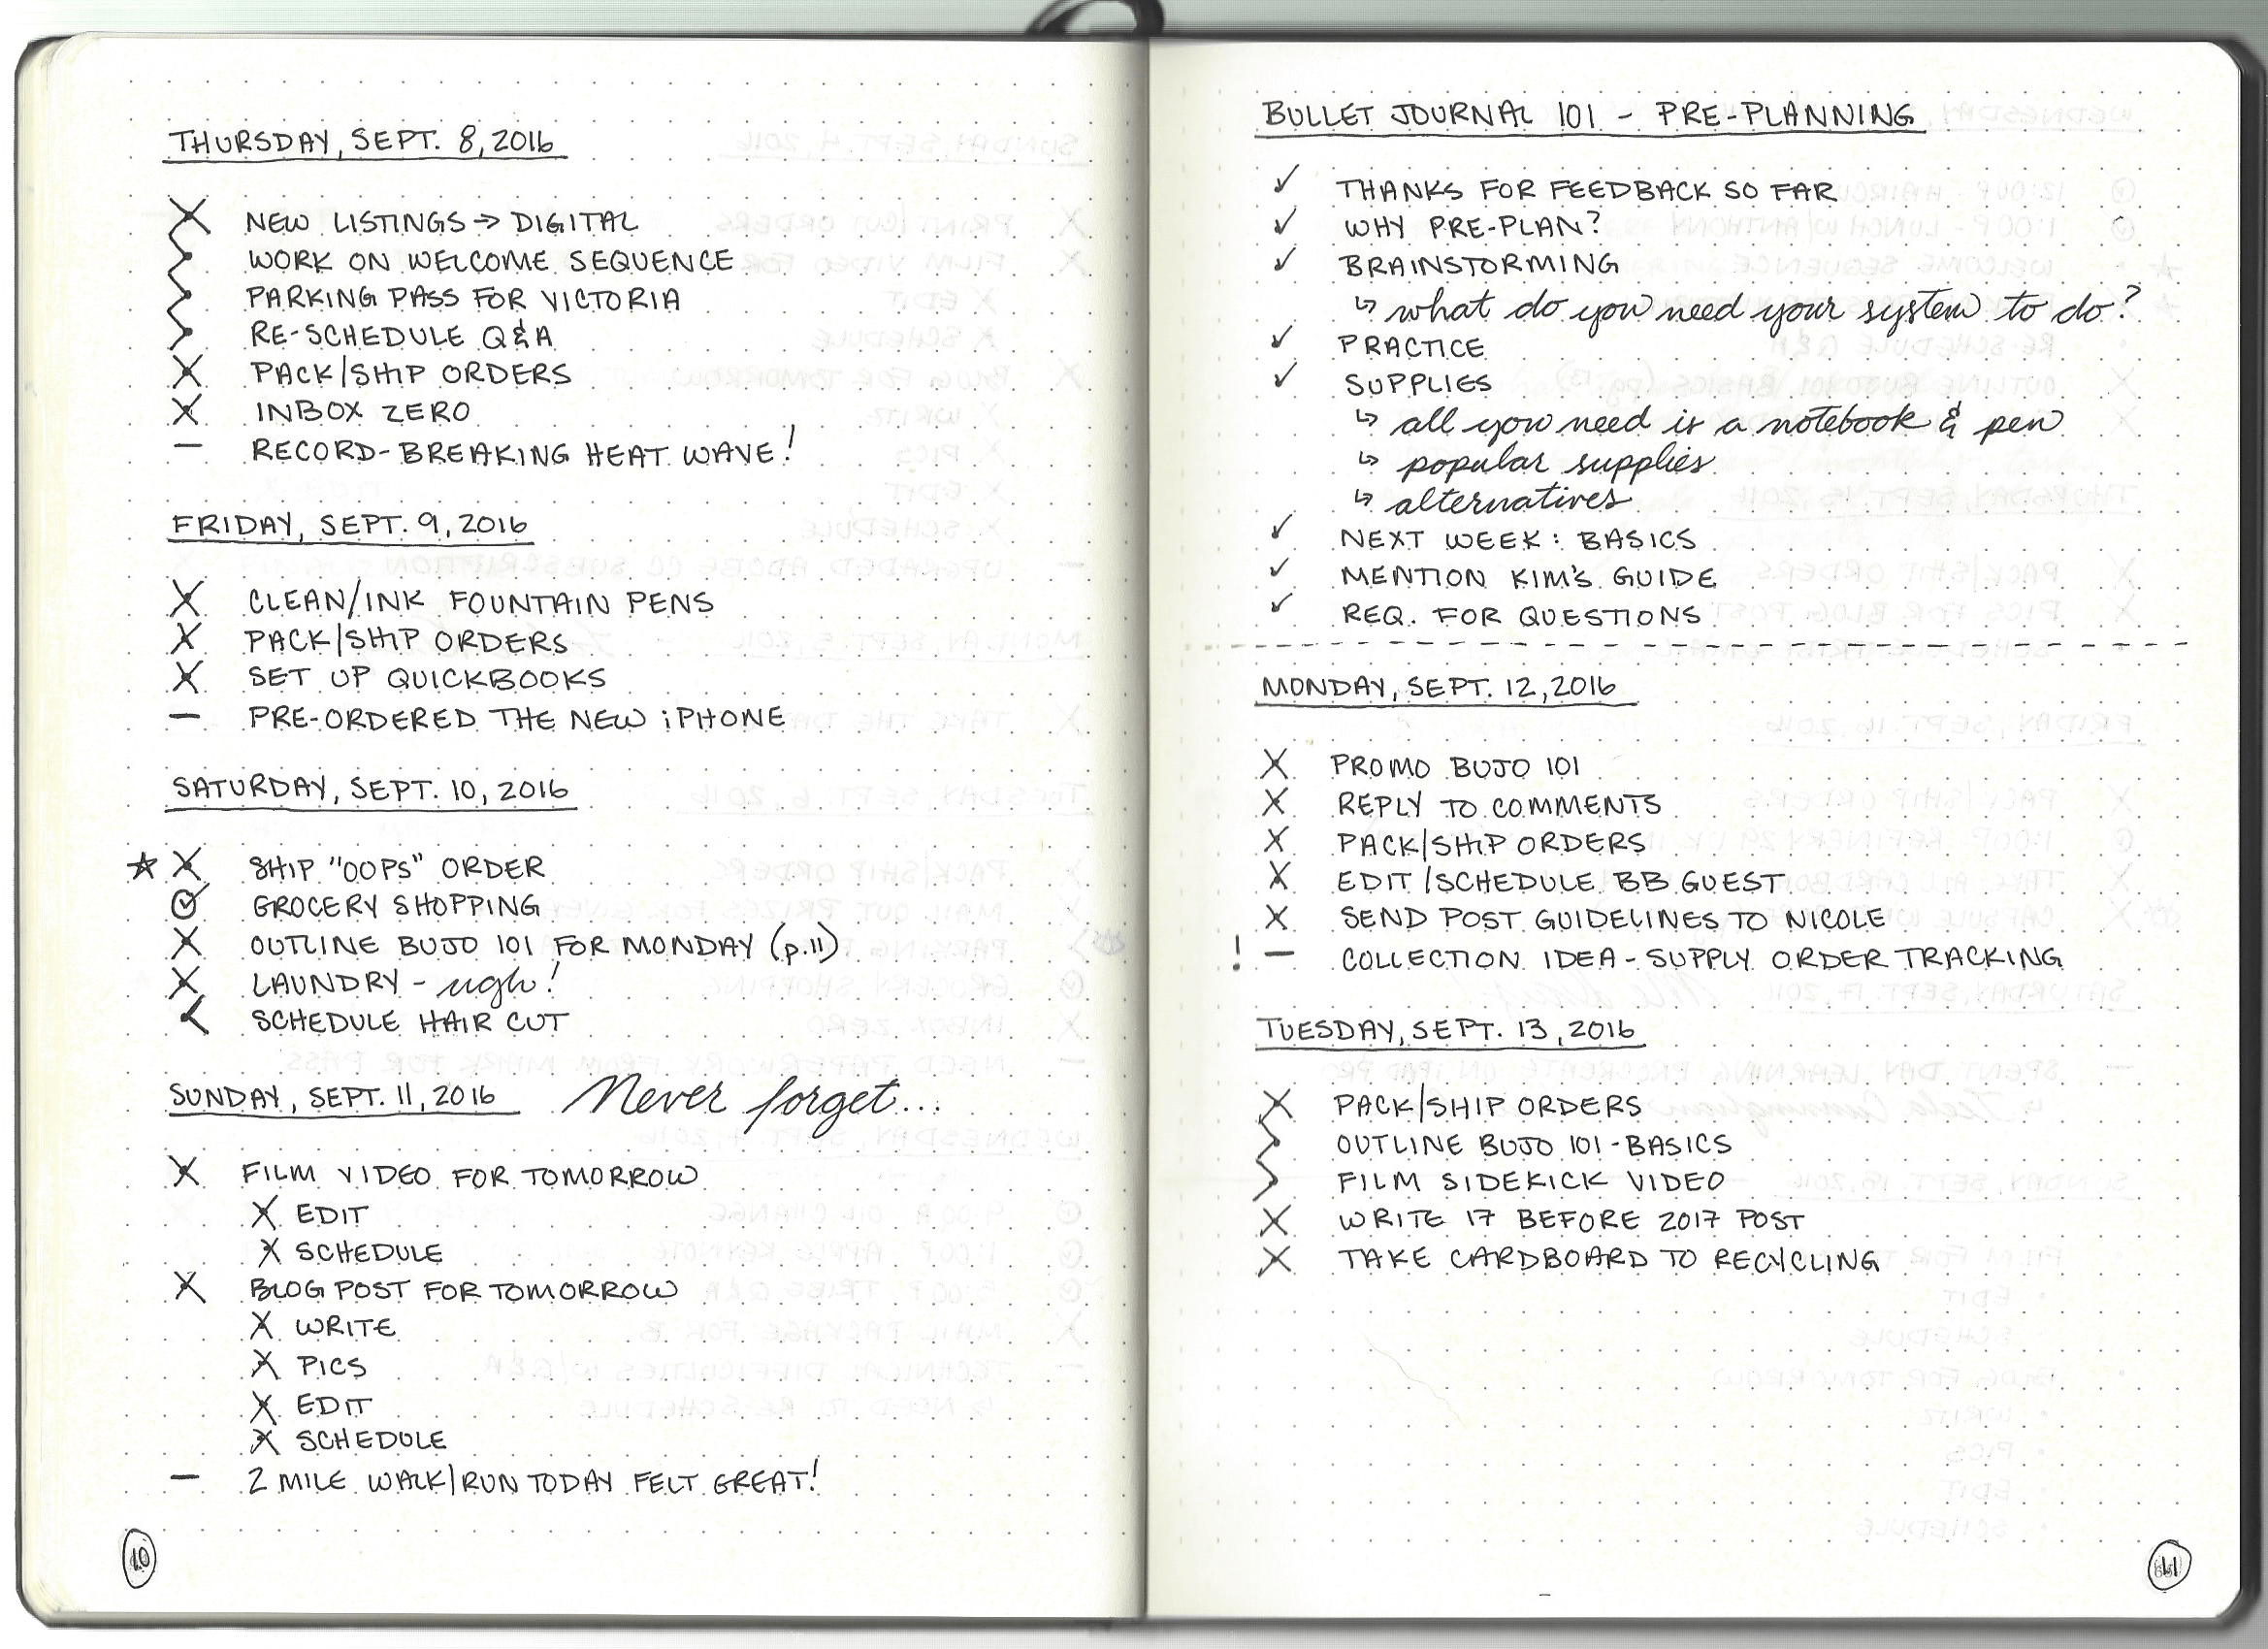 THURSDAY, SEPT. 8, 2016
X NEW LISTINGS → DIGITAL
> WORK ON WELCOME SEQUENCE
> PARKING PASS FOR VICTORIA
> RE-SCHEDULE Q&A
X PACK/SHIP ORDERS
X INBOX ZERO
— RECORD-BREAKING HEAT WAVE!
FRIDAY, SEPT. 9, 2016
X CLEAN/INK FOUNTAIN PENS
X PACK/SHIP ORDERS
X SET UP QUICKBOOKS
— PRE-ORDERED THE NEW iPHONE
SATURDAY, SEPT. 10, 2016
☆ X SHIP "OOPS" ORDER
GROCERY SHOPPING
X OUTLINE BUJO 101 FOR MONDAY (p.11)
X LAUNDRY - ugh!
< SCHEDULE HAIR CUT
SUNDAY, SEPT. 11, 2016 Never forget...
X FILM VIDEO FOR TOMORROW
X EDIT
X SCHEDULE
X BLOG POST FOR TOMORROW
X WRITE
X PICS
X EDIT
X SCHEDULE
— 2 MILE WALK/RUN TODAY FELT GREAT!
10
BULLET JOURNAL 101 - PRE-PLANNING
✓ THANKS FOR FEEDBACK SO FAR
✓ WHY PRE-PLAN?
✓ BRAINSTORMING
↳ what do you need your system to do?
✓ PRACTICE
✓ SUPPLIES
↳ all you need is a notebook & pen
↳ popular supplies
↳ alternatives
✓ NEXT WEEK: BASICS
✓ MENTION KIM'S GUIDE
✓ REQ. FOR QUESTIONS
MONDAY, SEPT. 12, 2016
X PROMO BUJO 101
X REPLY TO COMMENTS
X PACK/SHIP ORDERS
X EDIT/SCHEDULE BB GUEST
X SEND POST GUIDELINES TO NICOLE
! — COLLECTION IDEA - SUPPLY ORDER TRACKING
TUESDAY, SEPT. 13, 2016
X PACK/SHIP ORDERS
> OUTLINE BUJO 101-BASICS
> FILM SIDEKICK VIDEO
X WRITE 17 BEFORE 2017 POST
X TAKE CARDBOARD TO RECYCLING
11